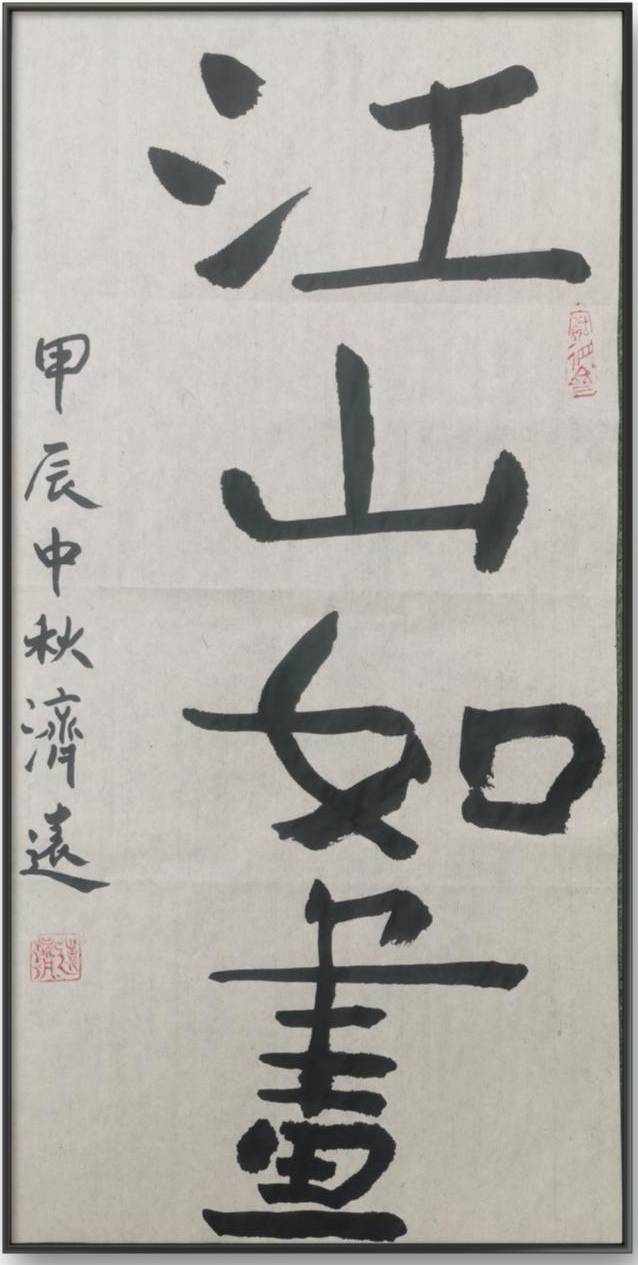 江山如畫
甲辰中秋濟遠